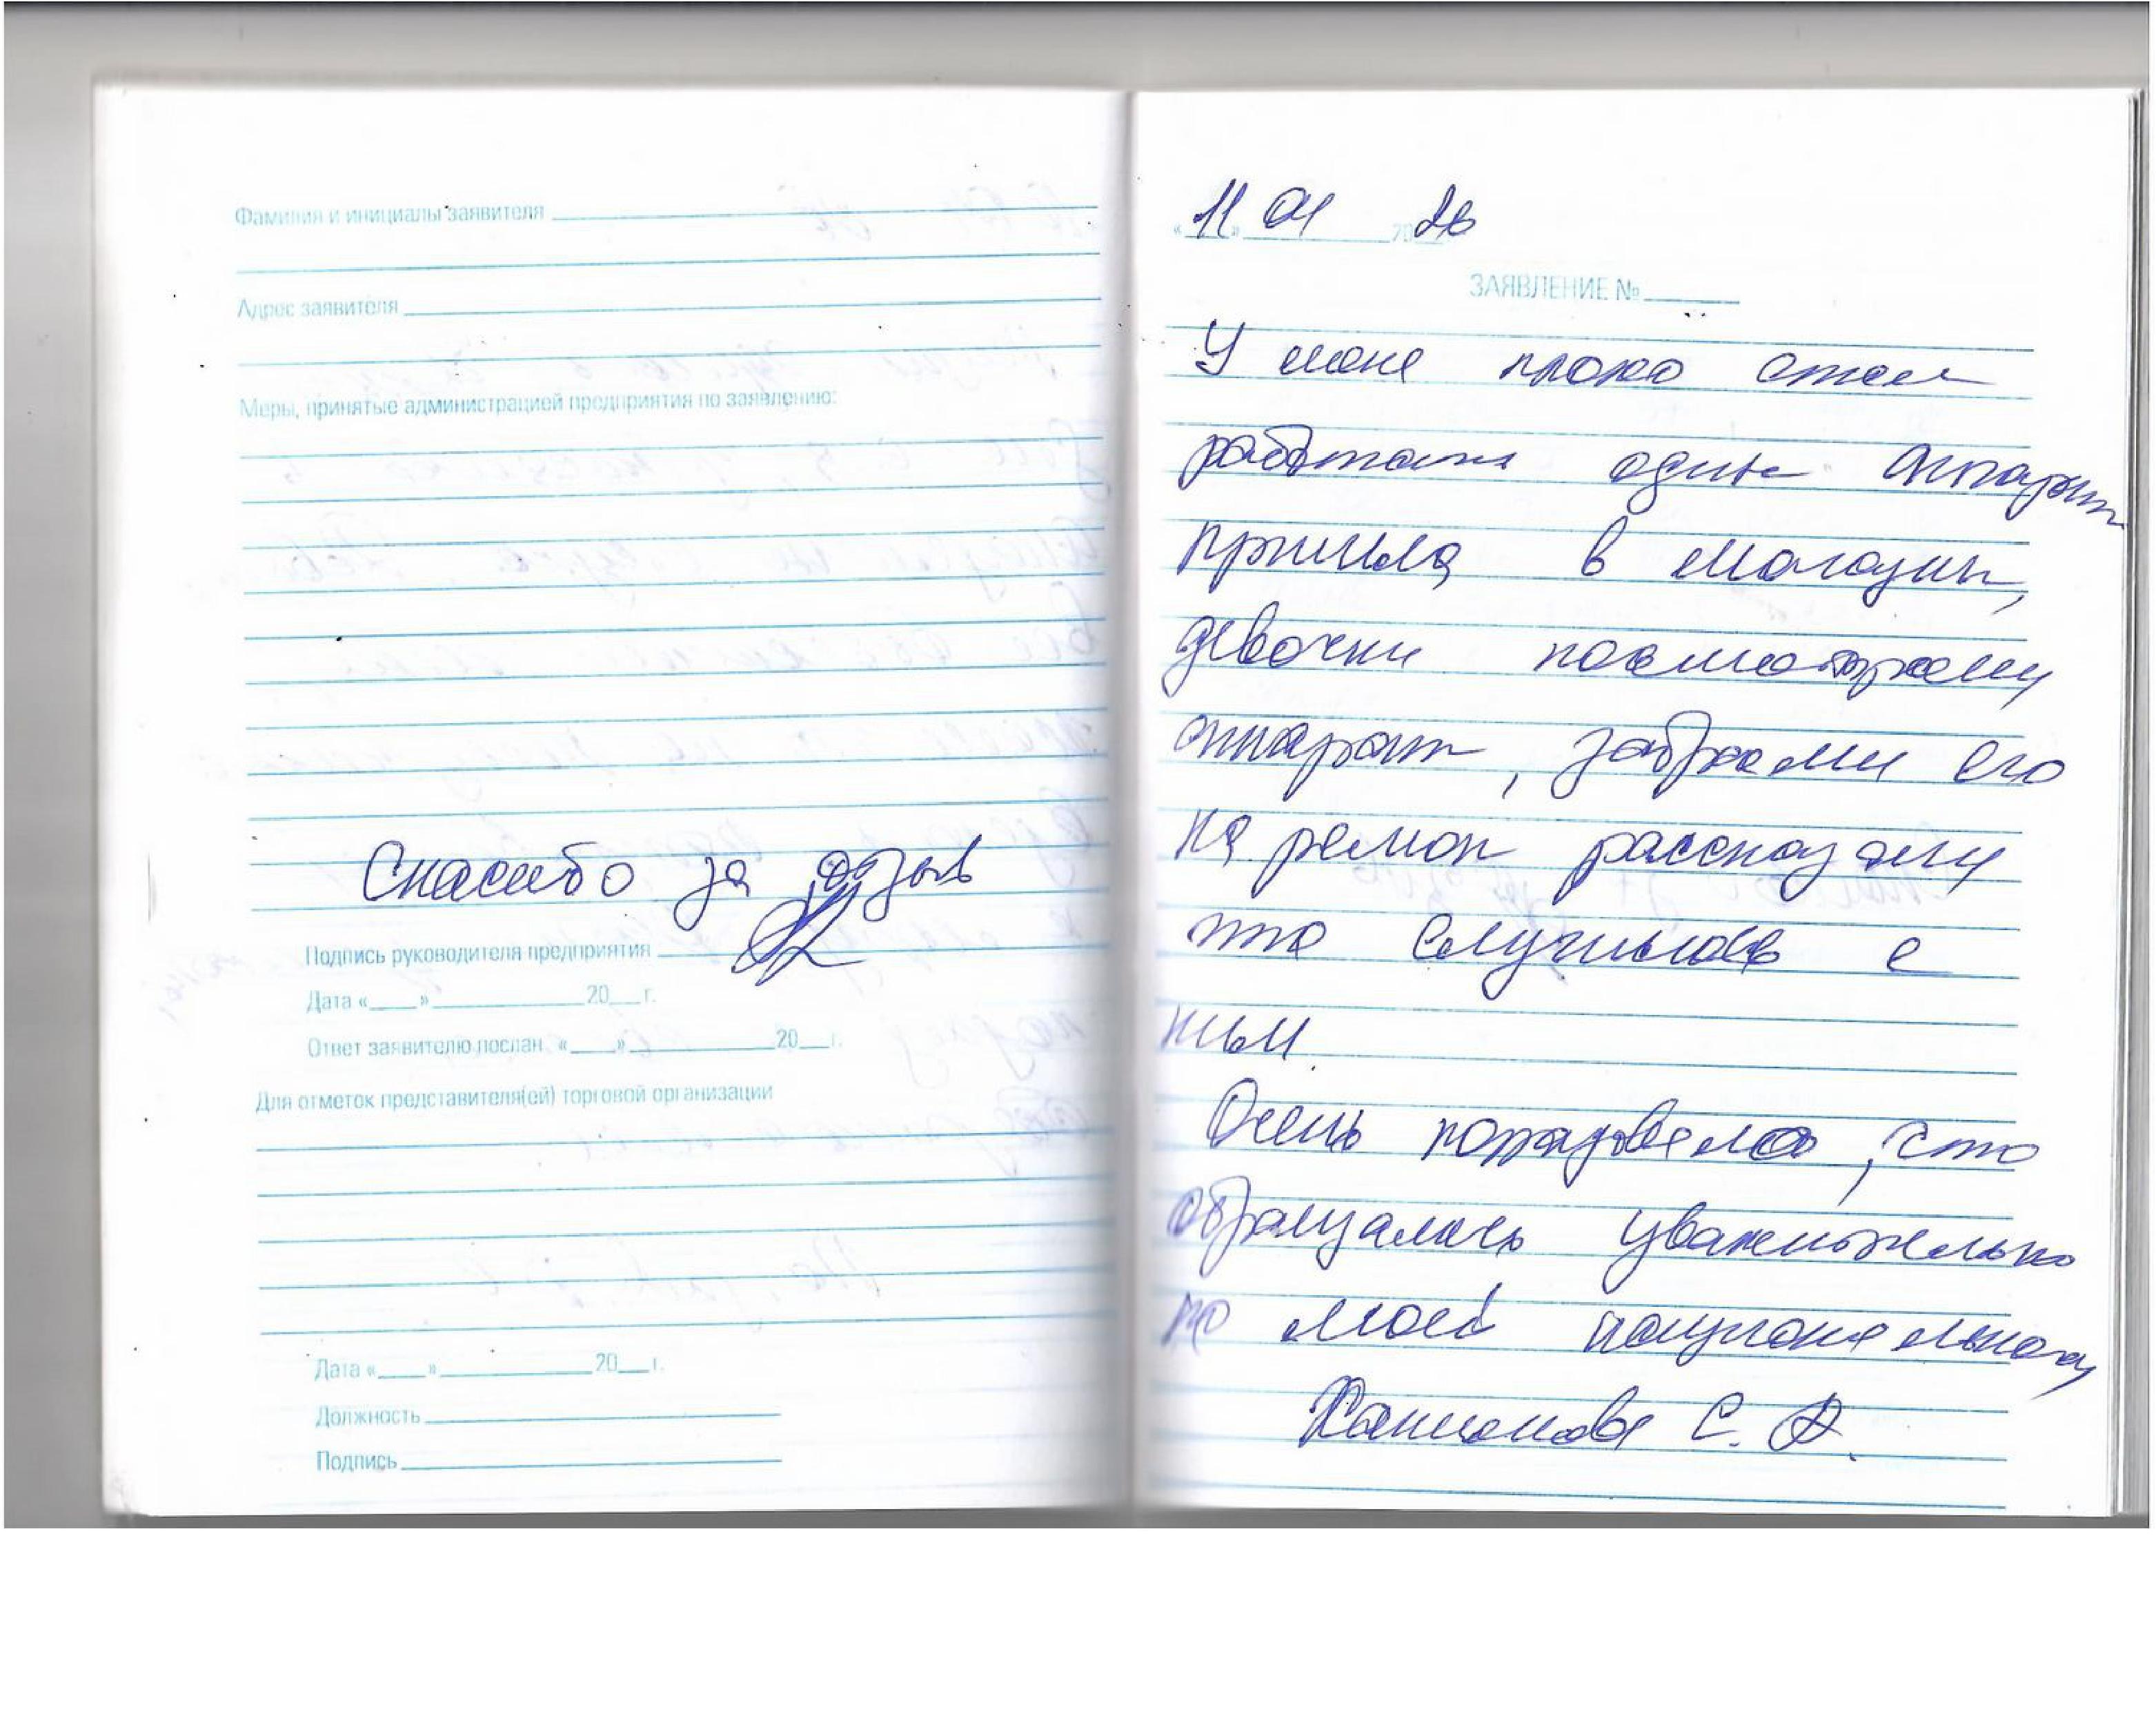 Фамилия и инициалы заявителя
Адрес заявителя
Меры, принятые администрацией предприятия по заявлению:
Спасибо за отзыв
Подпись руководителя предприятия
Дата «___» ___ 20__ г.
Ответ заявителю послан «___» ___ 20__ г.
Для отметок представителя(ей) торговой организации
Дата «___» ___ 20__ г.
Должность
Подпись
«11» 01 2026
ЗАЯВЛЕНИЕ №
У меня плохо стал
работать один аппарат
пришла в магазин,
девочки посмотрели
аппарат, забрали его
на ремон рассказали
что случилось с
ним
Очень понравилось, что
обращались уважительно
по моей национально
С. А.